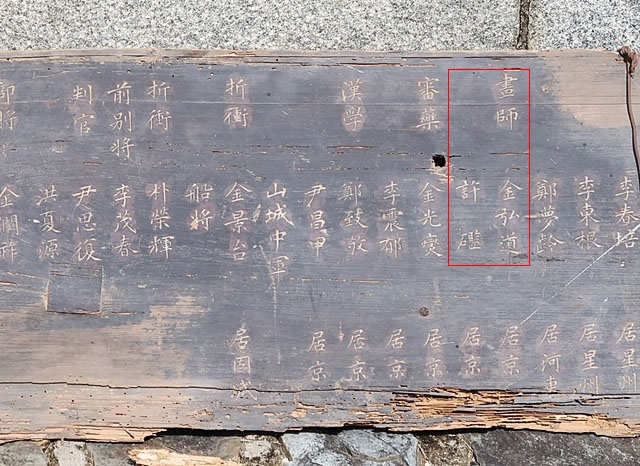 李春培 居星州
李東根 居星州
鄭夢齡 居河東
畫師 金弘道 居京
許礛 居京
審藥 金光燮 居京
李震郁 居京
漢學 鄭致敬 居京
尹昌甲 居京
山城中軍
折衝 金景台 居固城
船將
折衝 朴榮輝
前別將 李茂春
判官 尹思復
洪夏源
郎將 金潤祥